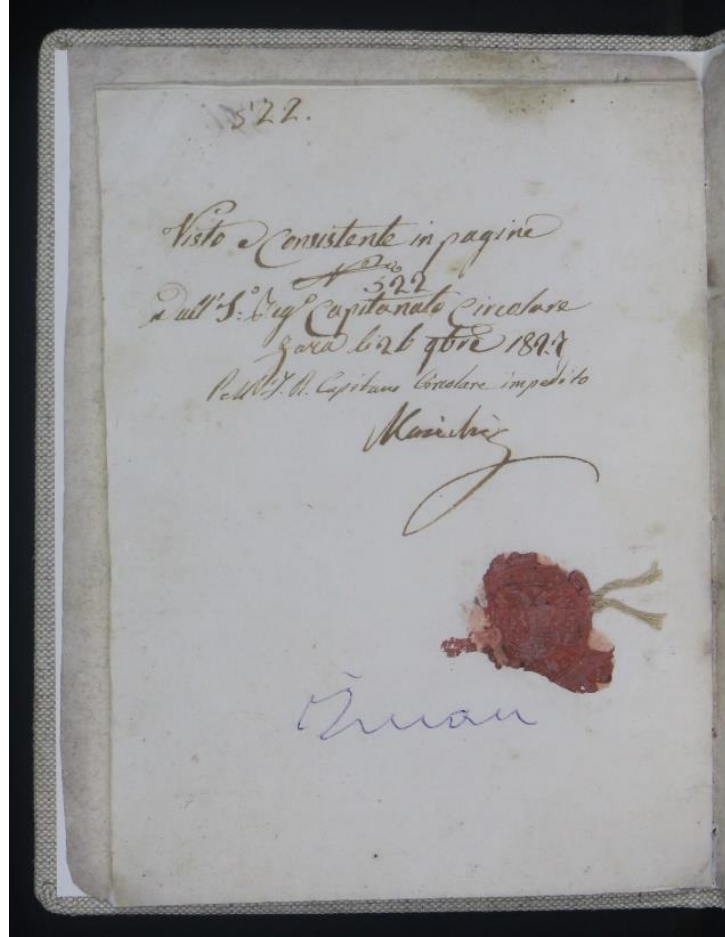 522.
Visto e Consistente in pagine
No 522
Dall' I: Reg° Capitanato Circolare
Zara li 26 9bre 1827
Pell' I. R. Capitano Circolare impedito